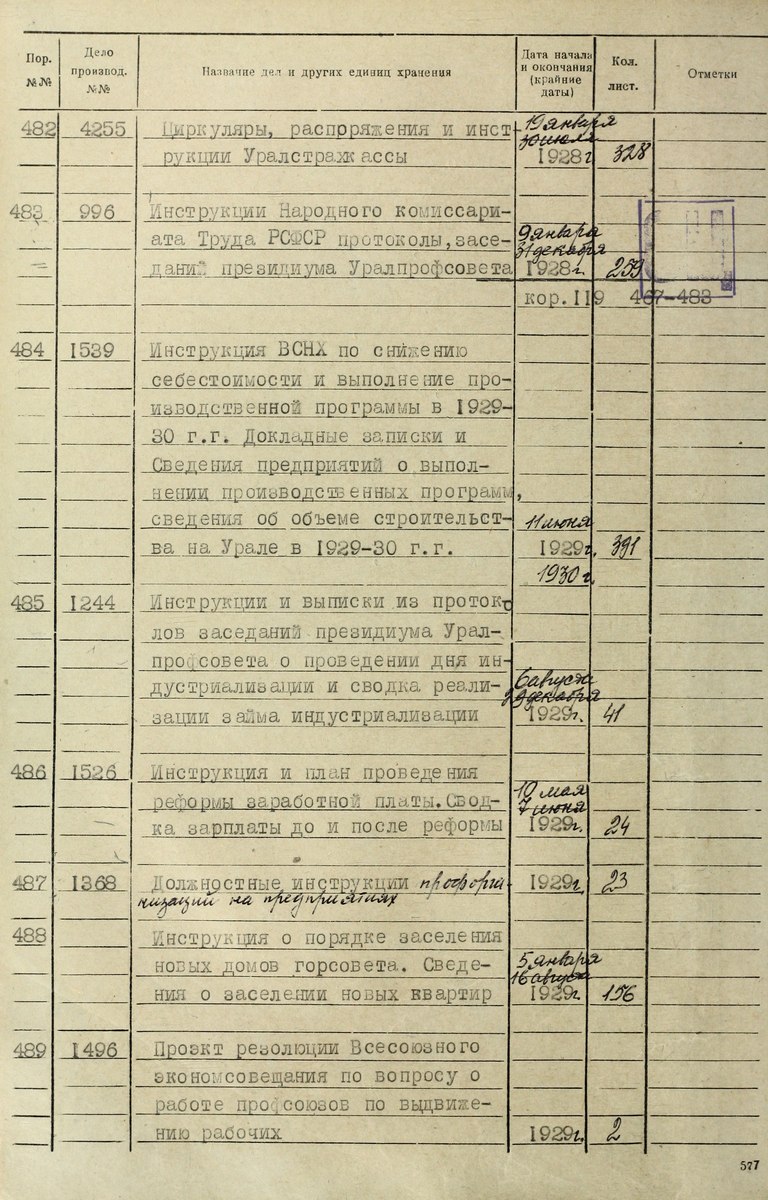 Пор. №№ Дело производ. №№ Название дел и других единиц хранения Дата начала и окончания (крайние даты) Кол. лист. Отметки
482 4255 Циркуляры, распрряжения и инст- 19 января
30 июля
рукции Уралстрахкассы 1928г 328
483 996 Инструкции Народного комиссари-
ата Труда РСФСР протоколы,засе- 9 января
31 декабря
даний президиума Уралпрофсовета 1928г. 259
кор.119 467-483
484 1539 Инструкция ВСНХ по снижению
себестоимости и выполнение про-
изводственной программы в 1929-
30 г.г. Докладные записки и
Сведения предприятий о выпол-
нении производственных программ,
сведения об объеме строительст- 11 июня
ва на Урале в 1929-30 г.г. 1929г. 391
1930 г.
485 1244 Инструкции и выписки из проток о
лов заседаний президиума Урал-
профсовета о проведении дня ин-
дустриализации и сводка реали- 6 августа
29 декабря
зации займа индустриализации 1929г. 41
486 1526 Инструкция и план проведения
реформы заработной платы.Свод- 10 мая
7 июня
ка зарплаты до и после реформы 1929г. 24
487 1368 Должностные инструкции профорга- 1929г. 23
низаций на предприятиях
488 Инструкция о порядке заселения
новых домов горсовета. Сведе- 5 января
16 августа
ния о заселении новых квартир 1929г. 156
489 1496 Проэкт резолюции Всесоюзного
экономсовещания по вопросу о
работе профсоюзов по выдвиже-
нию рабочих 1929г. 2
577